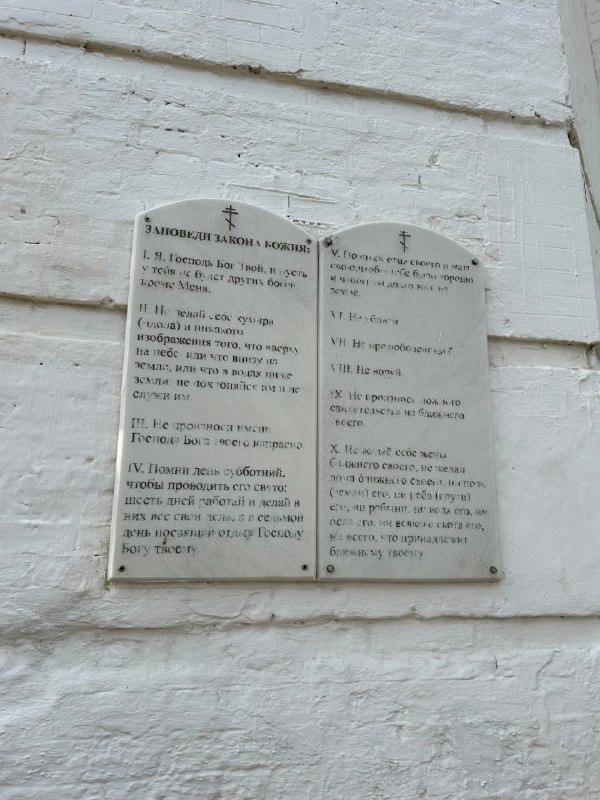 ЗАПОВЕДИ ЗАКОНА БОЖИЯ:
I. Я, Господь Бог Твой, и пусть
у тебя не будет других богов,
кроме Меня.
II. Не делай себе кумира
(идола) и никакого
изображения того, что вверху
на небе, или что внизу на
земле, или что в водах ниже
земли: не поклоняйся им и не
служи им.
III. Не произноси имени
Господа Бога твоего напрасно.
IV. Помни день субботний,
чтобы проводить его свято:
шесть дней работай и делай в
них все свои дела, а в седьмой
день посвящай отдых Господу
Богу твоему.
V. Почитай отца своего и мать
свою, чтобы тебе было хорошо
и чтобы ты долго жил на
земле.
VI. Не убивай.
VII. Не прелюбодействуй.
VIII. Не воруй.
IX. Не произноси ложного
свидетельства на ближнего
твоего.
X. Не желай себе жены
ближнего своего, не желай
дома ближнего своего, ни поля
(земли) его, ни раба (слуги)
его, ни рабыни, ни вола его, ни
осла его, ни всякого скота его,
ни всего, что принадлежит
ближнему твоему.